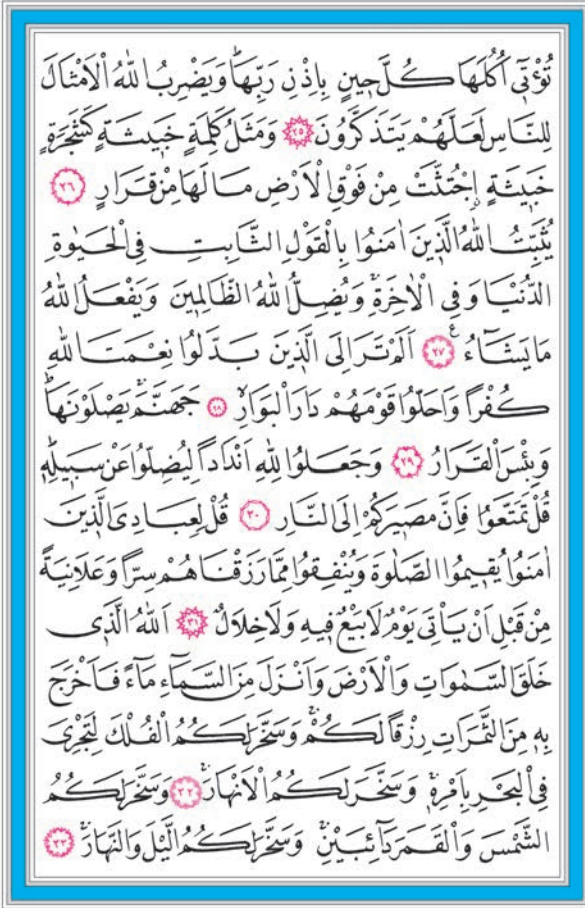 تُؤْتٖٓي اُكُلَهَا كُلَّ حٖينٍ بِاِذْنِ رَبِّهَاۜ وَيَضْرِبُ اللّٰهُ الْاَمْثَالَ
لِلنَّاسِ لَعَلَّهُمْ يَتَذَكَّرُونَ ﴿٢٥﴾ وَمَثَلُ كَلِمَةٍ خَبٖيثَةٍ كَشَجَرَةٍ
خَبٖيثَةٍۨ اجْتُثَّتْ مِنْ فَوْقِ الْاَرْضِ مَا لَهَا مِنْ قَرَارٍ ﴿٢٦﴾
يُثَبِّتُ اللّٰهُ الَّذٖينَ اٰمَنُوا بِالْقَوْلِ الثَّابِتِ فِي الْحَيٰوةِ
الدُّنْيَا وَفِي الْاٰخِرَةِۚ وَيُضِلُّ اللّٰهُ الظَّالِمٖينَ وَيَفْعَلُ اللّٰهُ
مَا يَشَٓاءُ ﴿٢٧﴾ ع اَلَمْ تَرَ اِلَى الَّذٖينَ بَدَّلُوا نِعْمَتَ اللّٰهِ
كُفْرًا وَاَحَلُّوا قَوْمَهُمْ دَارَ الْبَوَارِۙ ﴿٢٨﴾ جَهَنَّمَۚ يَصْلَوْنَهَاۜ
وَبِئْسَ الْقَرَارُ ﴿٢٩﴾ وَجَعَلُوا لِلّٰهِ اَنْدَادًا لِيُضِلُّوا عَنْ سَبٖيلِهٖۜ
قُلْ تَمَتَّعُوا فَاِنَّ مَصٖيرَكُمْ اِلَى النَّارِ ﴿٣٠﴾ قُلْ لِعِبَادِيَ الَّذٖينَ
اٰمَنُوا يُقٖيمُوا الصَّلٰوةَ وَيُنْفِقُوا مِمَّا رَزَقْنَاهُمْ سِرًّا وَعَلَانِيَةً
مِنْ قَبْلِ اَنْ يَأْتِيَ يَوْمٌ لَا بَيْعٌ فٖيهِ وَلَا خِلَالٌ ﴿٣١﴾ اَللّٰهُ الَّذٖي
خَلَقَ السَّمٰوَاتِ وَالْاَرْضَ وَاَنْزَلَ مِنَ السَّمَٓاءِ مَٓاءً فَاَخْرَجَ
بِهٖ مِنَ الثَّمَرَاتِ رِزْقًا لَكُمْۚ وَسَخَّرَ لَكُمُ الْفُلْكَ لِتَجْرِيَ
فِي الْبَحْرِ بِاَمْرِهٖۚ وَسَخَّرَ لَكُمُ الْاَنْهَارَۚ ﴿٣٢﴾ وَسَخَّرَ لَكُمُ
الشَّمْسَ وَالْقَمَرَ دَٓائِبَيْنِۚ وَسَخَّرَ لَكُمُ الَّيْلَ وَالنَّهَارَۚ ﴿٣٣﴾